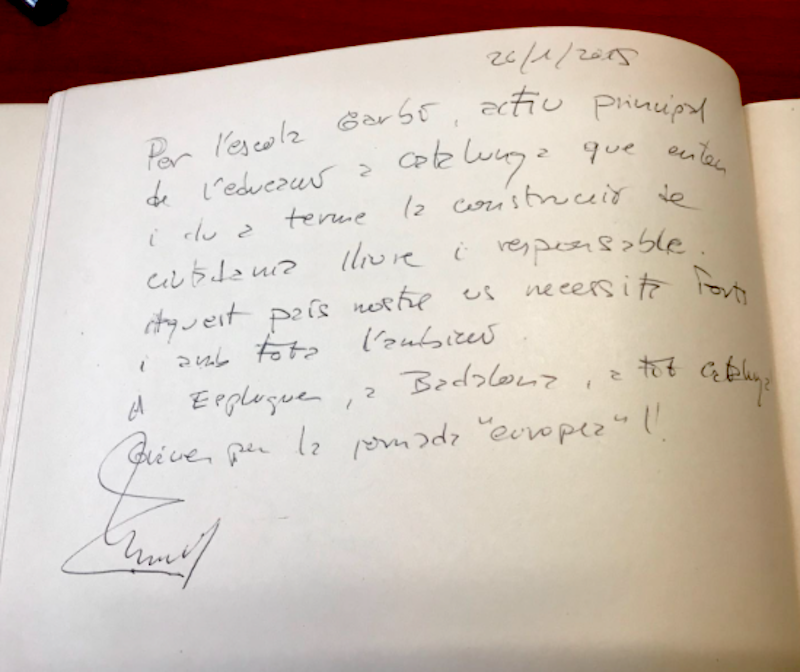 26/1/2015
Per l'escola Garbí, actiu principal
de l'educació a catalunya que enten
i du a terme la construcció de
ciutadania lliure i responsable.
Aquest país nostre us necessita forts
i amb tota l'ambició
A Esplugues, a Badalona, a tot catalunya
Gràcies per la jornada "europea"!